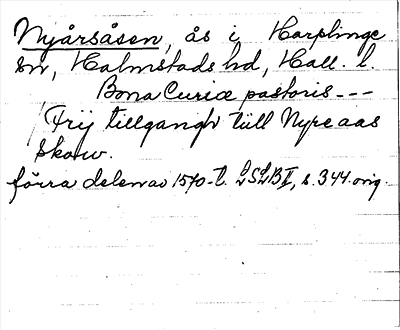 Nyårsåsen, ås i Harplinge
sn, Halmstads hd, Hall. l.
Bona Curiæ pastoris ---
Frij tillgangh till Nyreaas
skow.
förra delen av 1570-t. LSLB II, s. 344. orig.